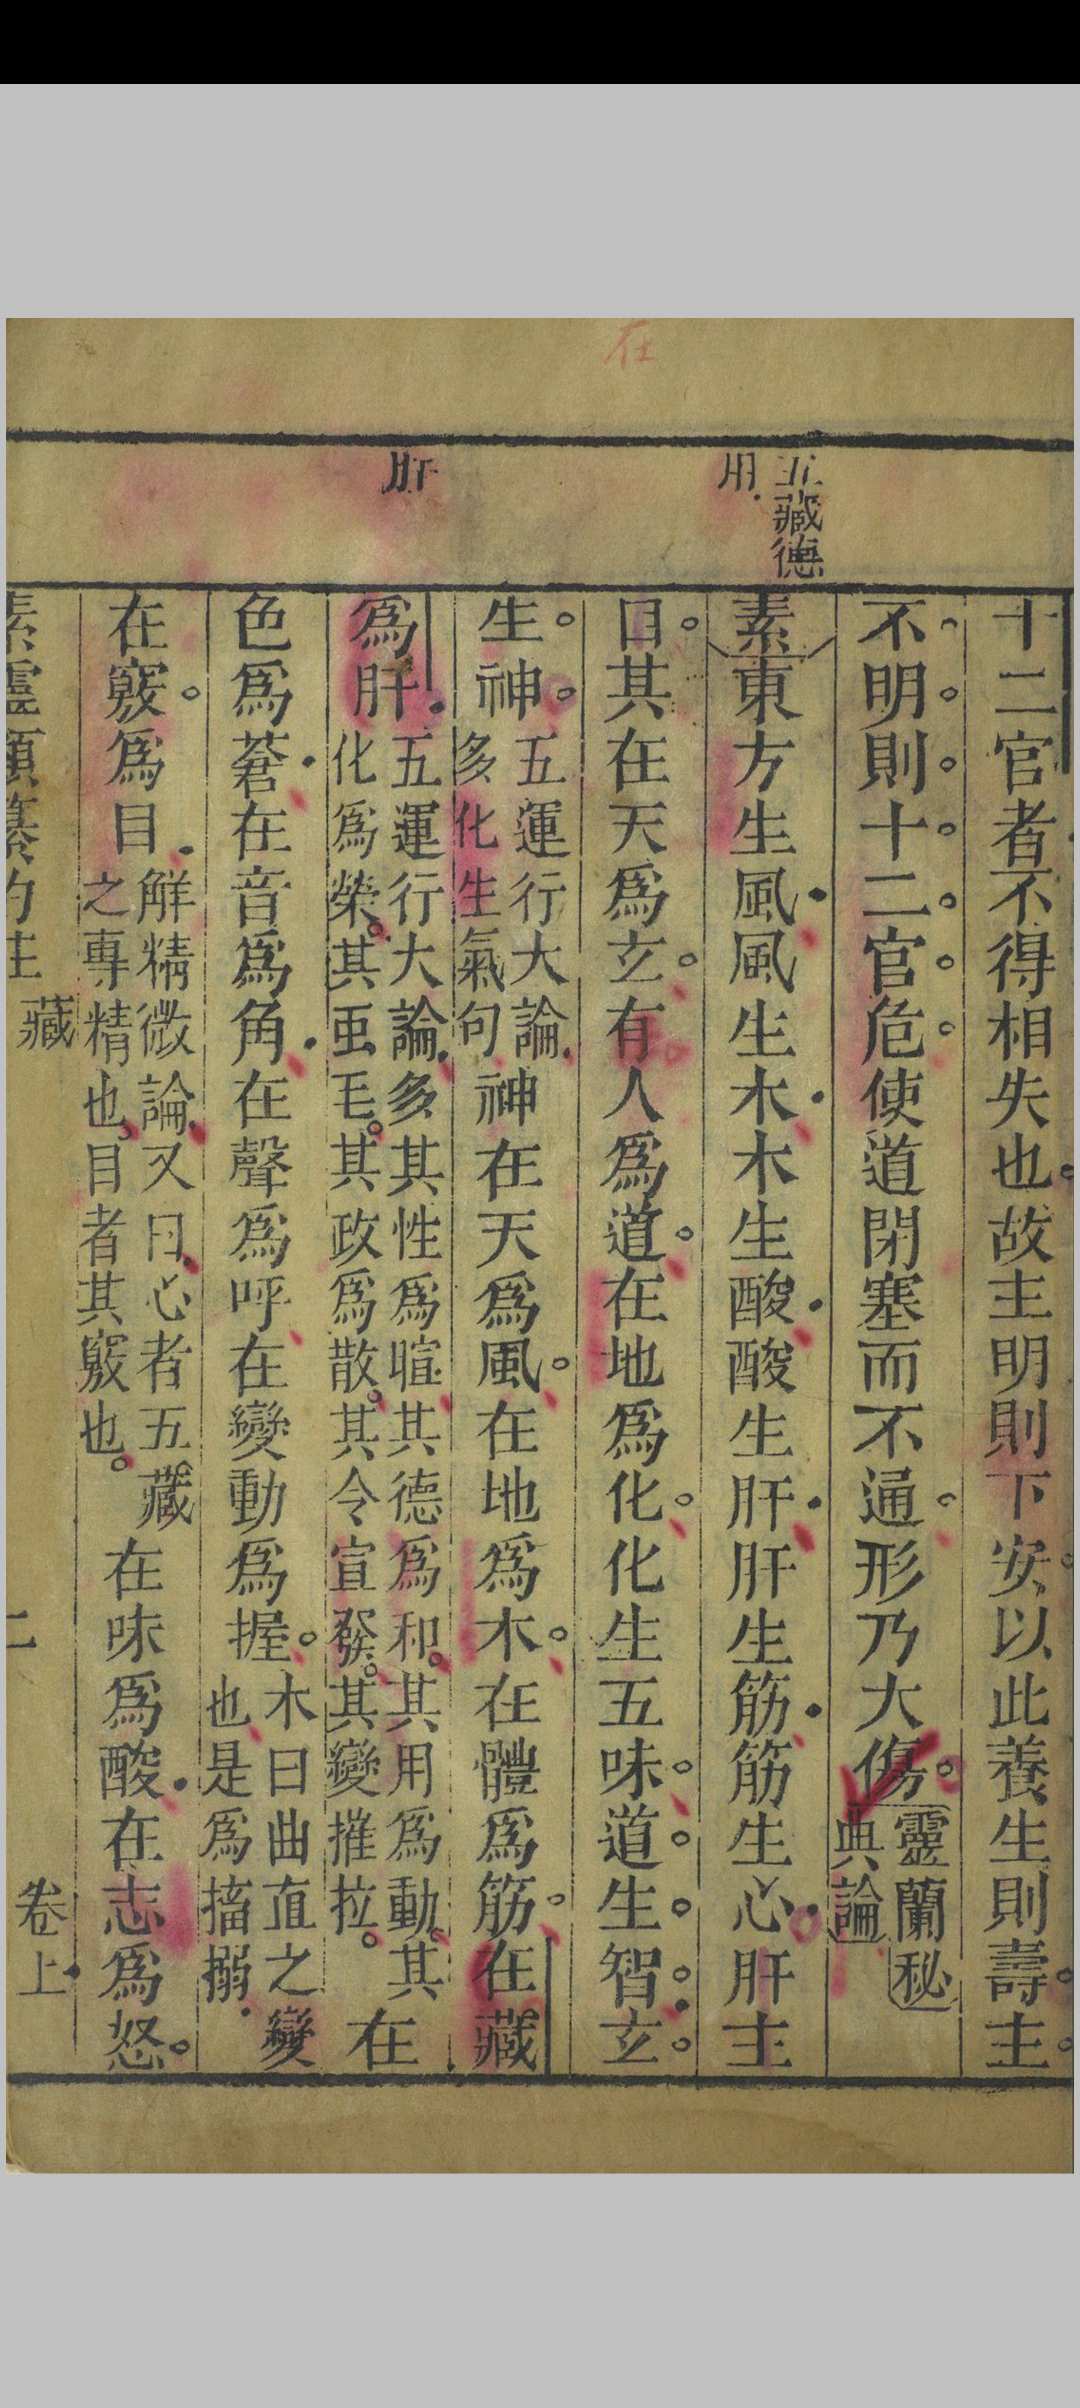 在
五藏德
用
肝
十二官者不得相失也故主明則下安以此養生則壽主
不明則十二官危使道閉塞而不通形乃大傷靈蘭秘
典論
素東方生風風生木木生酸酸生肝肝生筋筋生心肝主
目其在天爲玄有人爲道在地爲化化生五味道生智玄
生神五運行大論
多化生氣句神在天爲風在地爲木在體爲筋在藏
爲肝五運行大論多其性爲暄其德爲和其用爲動其
化爲榮其虫毛其政爲散其令宣發其變摧拉在
色爲蒼在音爲角在聲爲呼在變動爲握木曰曲直之變
也是爲搐搦
在竅爲目解精微論又曰心者五藏
之專精也目者其竅也在味爲酸在志爲怒
素靈類纂約註 藏 二 卷上